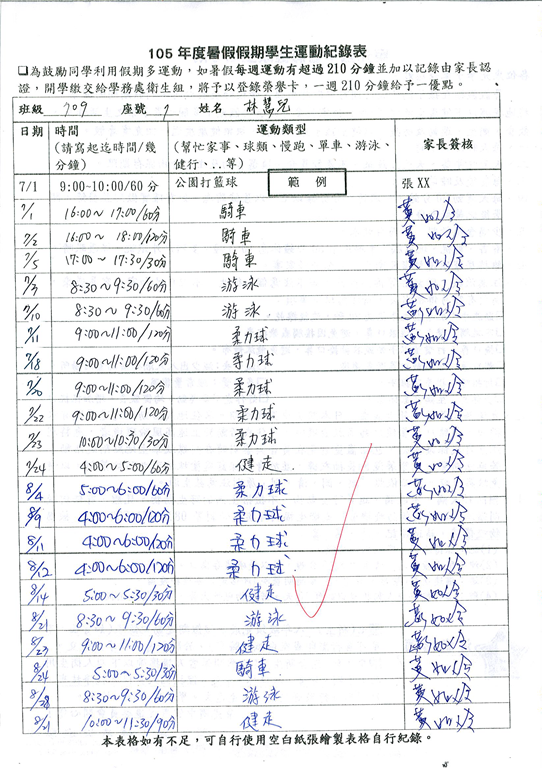 105 年度暑假假期學生運動紀錄表
❑為鼓勵同學利用假期多運動，如暑假每週運動有超過 210 分鐘並加以記錄由家長認
證，開學繳交給學務處衛生組，將予以登錄榮譽卡，一週 210 分鐘給予一優點。
班級 709 座號 7 姓名 林
日期 時間(請寫起迄時間/幾分鐘) 運動類型(幫忙家事、球類、慢跑、單車、游泳、健行、..等) 家長簽核
7/1 9:00~10:00/60 分 公園打籃球 範例 張 XX
7/1 16:00~17:00/60分 騎車 黃
7/2 16:00~18:00/120分 騎車 黃
7/5 17:00~17:30/30分 騎車 黃
8:30~9:30/60分 游泳 黃
7/10 8:30~9:30/60分 游泳 黃
7/11 9:00~11:00/120分 柔力球 黃
7/18 9:00~11:00/120分 柔力球 黃
7/20 9:00~11:00/120分 柔力球 黃
7/22 9:00~11:00/120分 柔力球 黃
7/23 10:00~10:30/30分 柔力球 黃
7/24 4:00~5:00/60分 健走 黃
8/4 5:00~6:00/60分 柔力球 黃
8/9 4:00~6:00/120分 柔力球 黃
8/11 4:00~6:00/120分 柔力球 黃
8/12 4:00~6:00/120分 柔力球 黃
8/14 5:00~5:30/30分 健走 黃
8/21 8:30~9:30/60分 游泳 黃
8/23 9:00~11:00/120分 健走 黃
8/24 5:00~5:30/30分 騎車 黃
8/28 8:30~9:30/60分 游泳 黃
8/21 10:00~11:30/90分 健走 黃
本表格如有不足，可自行使用空白紙張繪製表格自行紀錄。